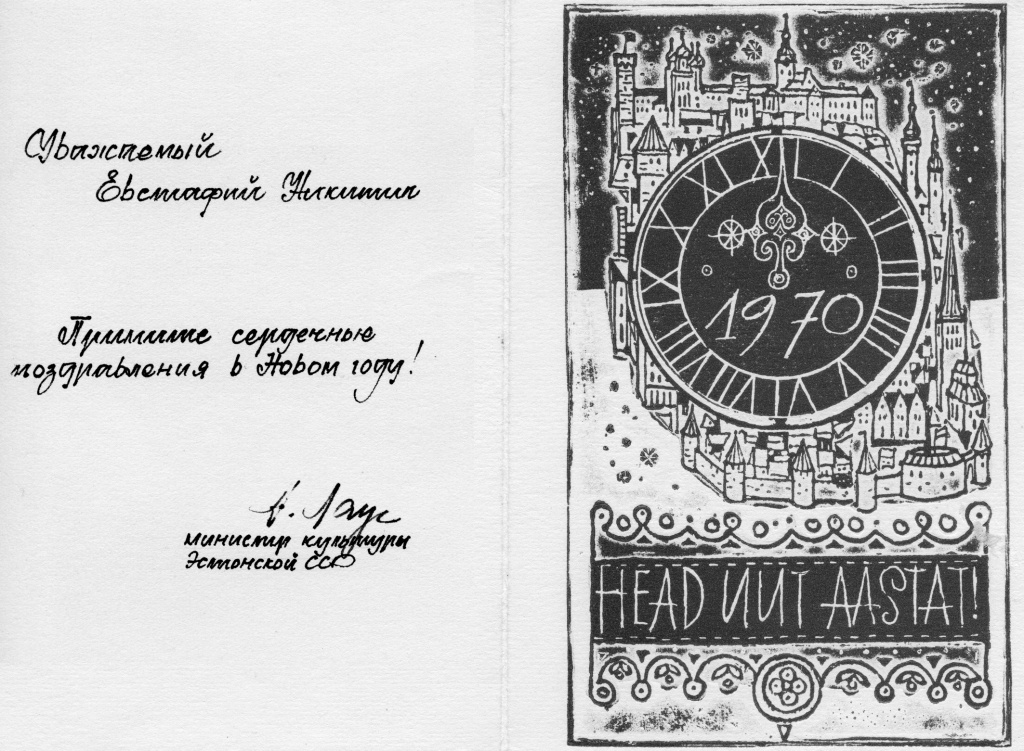 Уважаемый
Евстафий Никитич
Примите сердечные
поздравления в Новом году!
А. Лаус
министр культуры
Эстонской ССР
XII
1970
HEAD UUT AASTAT!